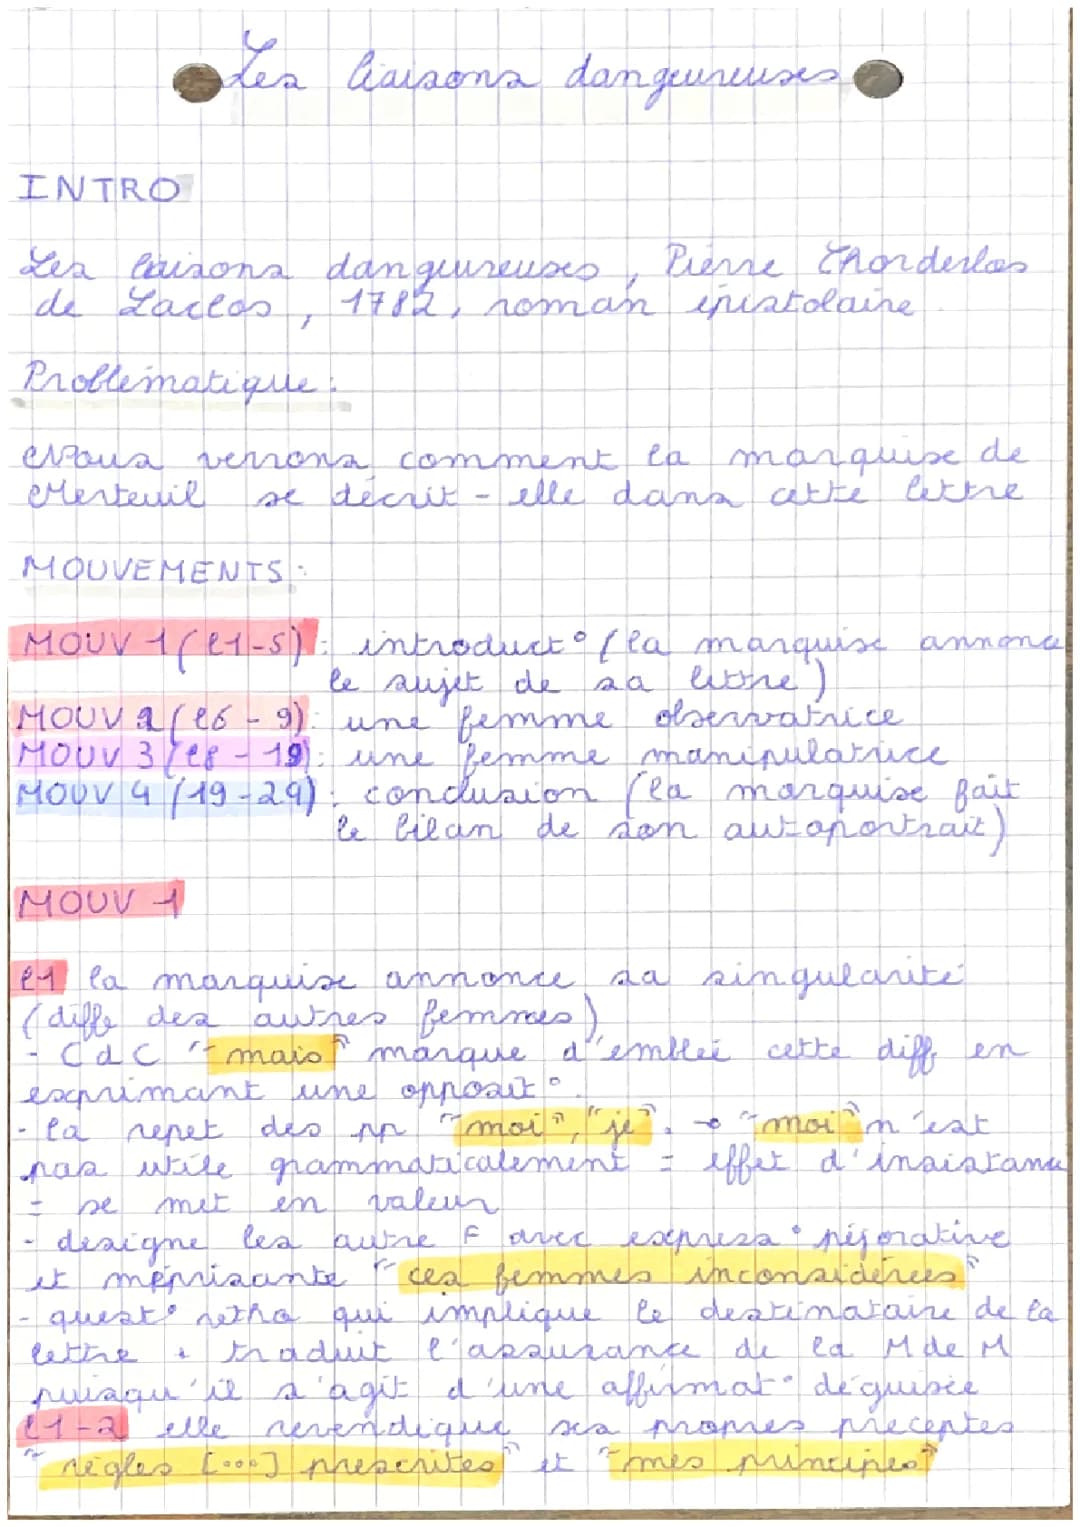 Les liaisons dangeureuses
INTRO
Les liaisons dangeureuses, Pierre Chorderlos
de Laclos, 1782, roman épistolaire.
Problématique :
Nous verrons comment la marquise de
Merteuil se décrit-elle dans cette lettre
MOUVEMENTS :
MOUV 1 (l1-5) : introduct° (la marquise annonce
le sujet de sa lettre)
MOUV 2 (l6-9) : une femme observatrice
MOUV 3 (l8-19) : une femme manipulatrice
MOUV 4 (19-29) : conclusion (la marquise fait
le bilan de son autoportrait)
MOUV 1
l1 la marquise annonce sa singularité
(diffe des autres femmes)
- CdC "mais" marque d'emblée cette diff en
exprimant une opposit°
- la repet des pp "moi", "je". → "moi" n'est
pas utile grammaticalement = effet d'insistance
= se met en valeur
- designe les autre F avec express° péjorative
et méprisante "ces femmes inconsidérées"
- quest° rétho qui implique le destinataire de la
lettre + traduit l'assurance de la M de M
puisqu'il s'agit d'une affirmat° déguisée
l1-2 elle revendique ses propres préceptes
"règles [...] prescrites" et "mes principes"